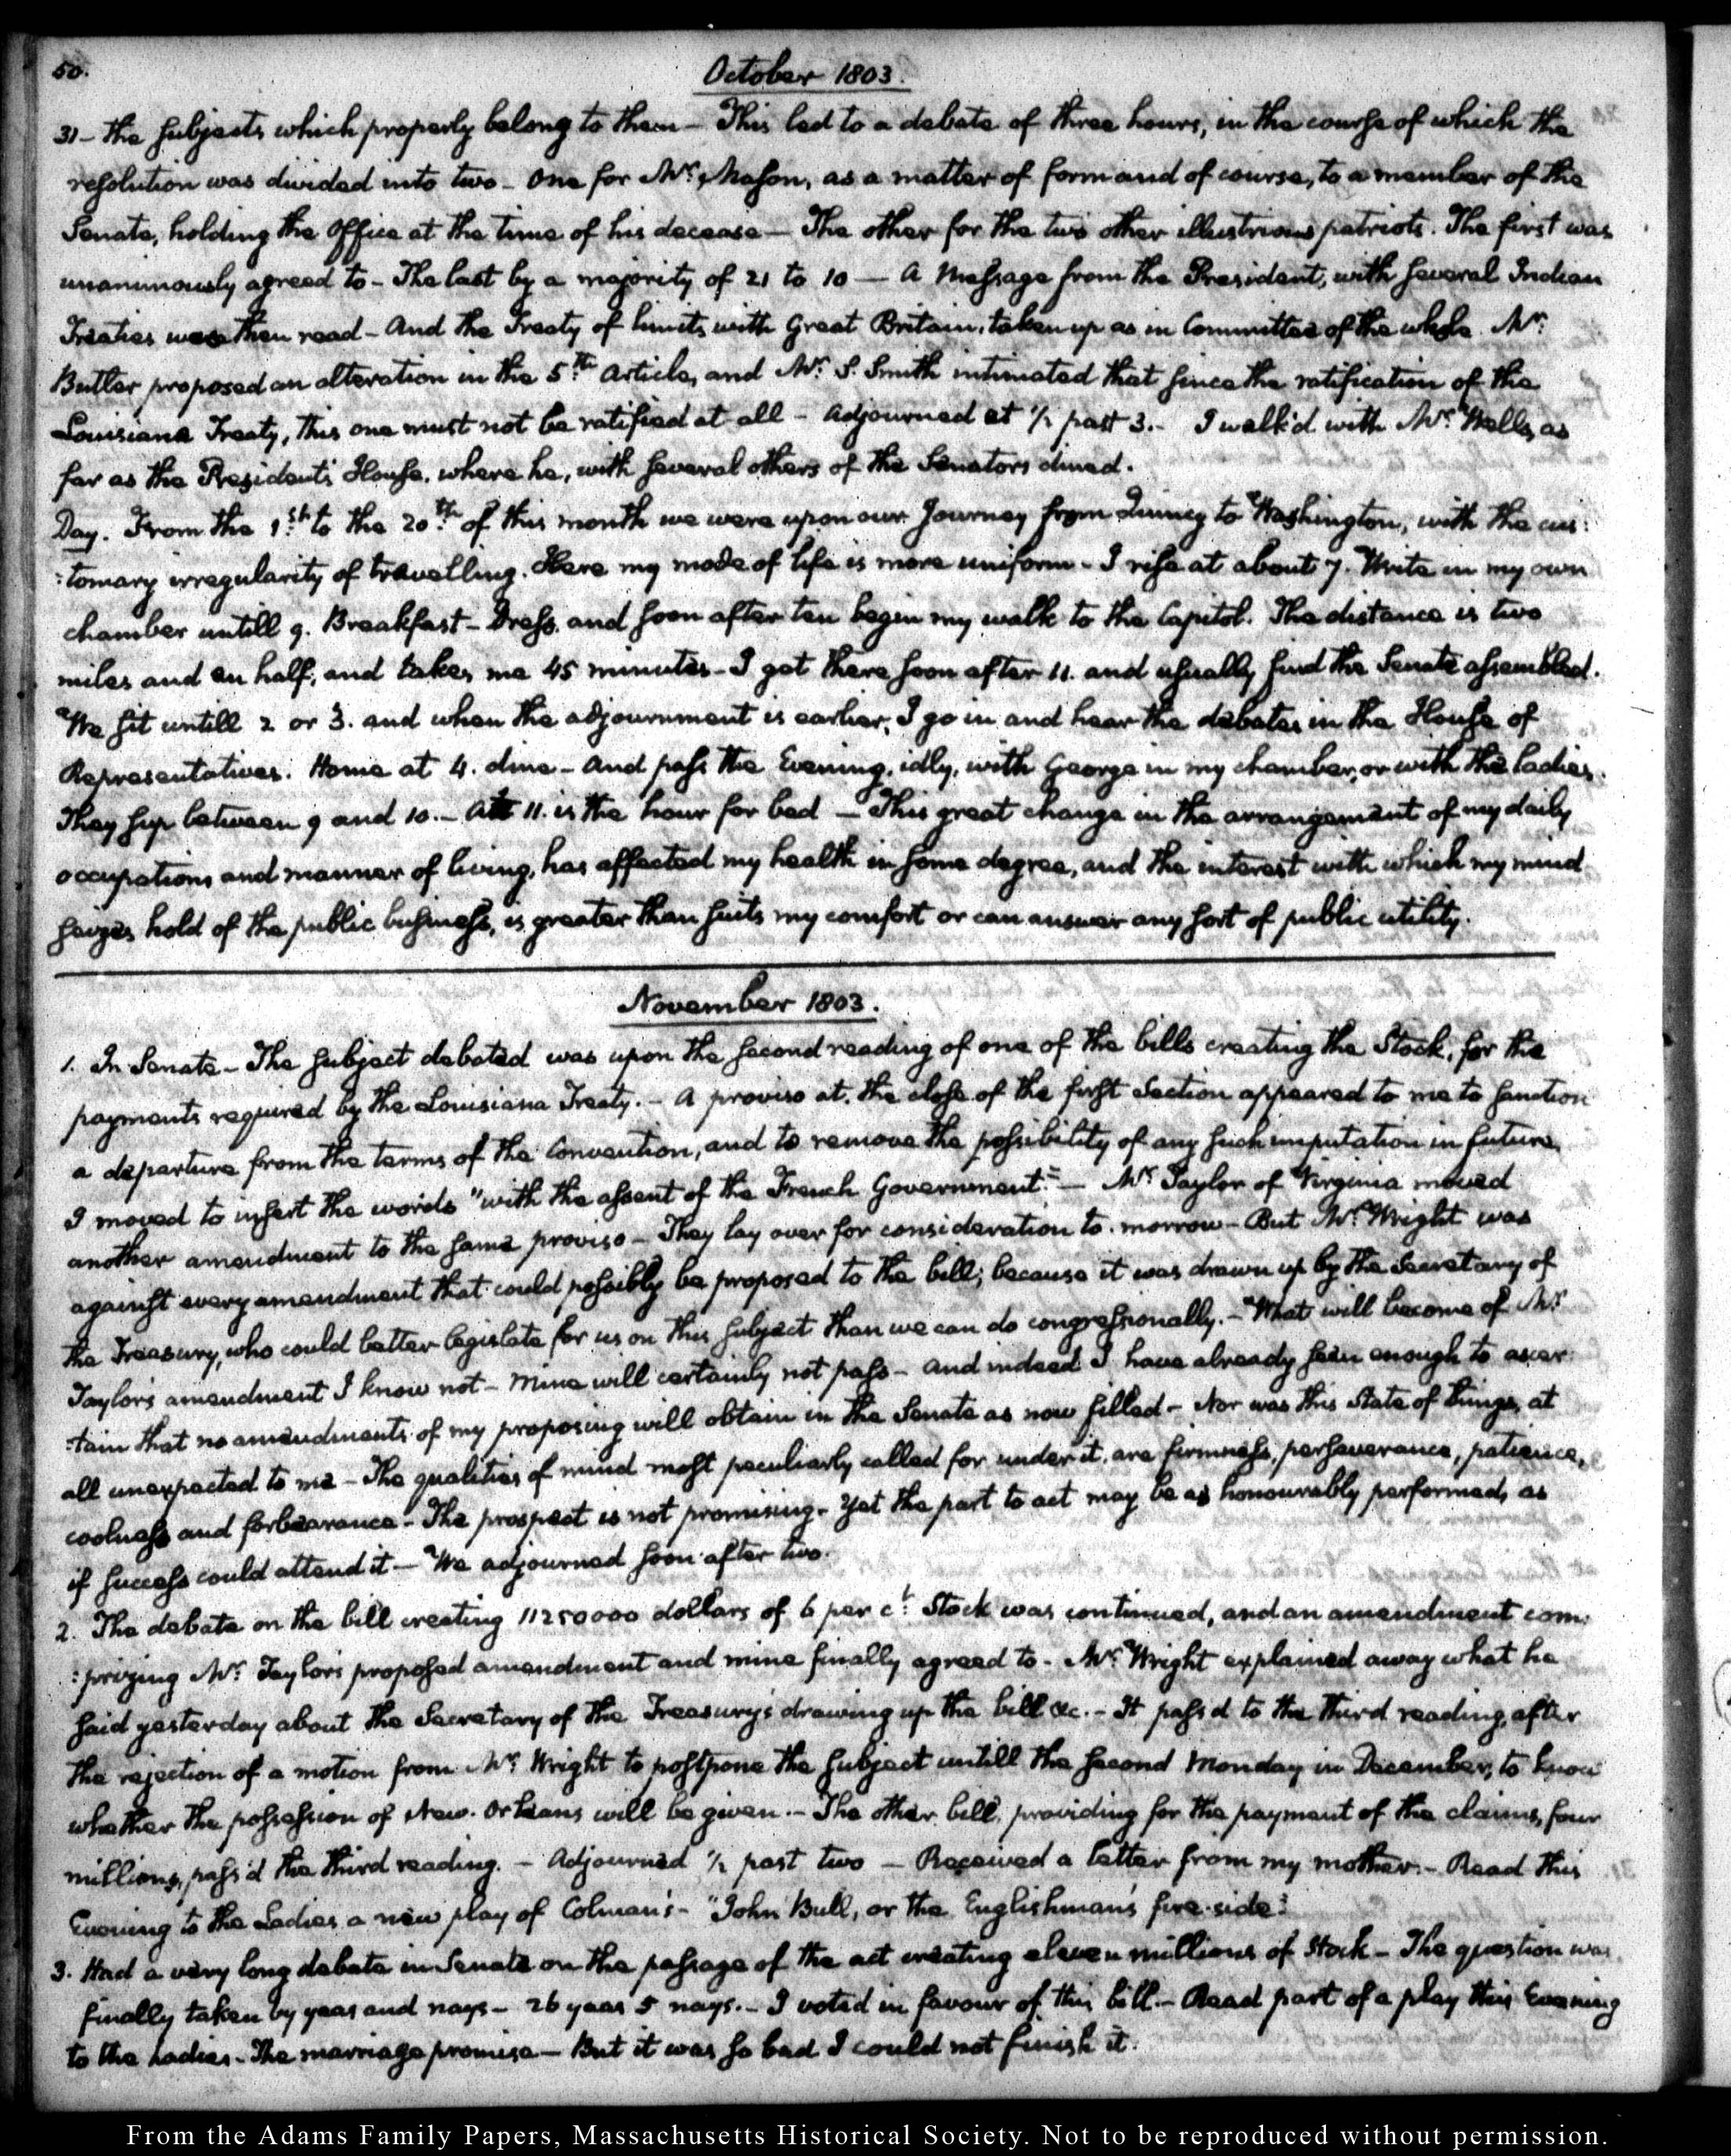 50.
October 1803.
31 – the subjects which properly belong to them – This led to a debate of three hours, in the course of which the
resolution was divided into two – One for Mr. Mason, as a matter of form and of course, to a member of the
Senate, holding the Office at the time of his decease – The other for the two other illustrious patriots. The first was
unanimously agreed to – The last by a majority of 21 to 10 – A Message from the President, with several Indian
Treaties was then read – And the Treaty of limits with Great Britain, taken up as in Committee of the whole. Mr.
Butler proposed an alteration in the 5th Article, and Mr. S. Smith intimated that since the ratification of the
Louisiana Treaty, this one must not be ratified at all – Adjourned at ½ past 3. – I walk'd with Mr. Wells, as
far as the President's House, where he, with several others of the Senators dined.
Day. From the 1st to the 20th of this month we were upon our Journey from Quincy to Washington, with the cus:
:tomary irregularity of travelling. Here my mode of life is more uniform – I rise at about 7. Write in my own
chamber untill 9. Breakfast – Dress, and soon after ten begin my walk to the Capitol. The distance is two
miles and an half, and takes me 45 minutes – I get there soon after 11. and usually find the Senate assembled.
We sit untill 2 or 3. and when the adjournment is earlier, I go in and hear the debates in the House of
Representatives. Home at 4. dine – And pass the Evening, idly, with George in my chamber, or with the ladies.
They sup between 9 and 10. – At 11. is the hour for bed – This great change in the arrangement of my daily
occupations and manner of living, has affected my health in some degree, and the interest with which my mind
seizes hold of the public business, is greater than suits my comfort or can answer any sort of public utility.
November 1803.
1. In Senate – The subject debated was upon the second reading of one of the bills creating the Stock, for the
payments required by the Louisiana Treaty. – A proviso at the close of the first Section appeared to me to sanction
a departure from the terms of the Convention, and to remove the possibility of any such imputation in future,
I moved to insert the words "with the assent of the French Government." – Mr. Taylor of Virginia moved
another amendment to the same proviso – They lay over for consideration to-morrow – But Mr. Wright was
against every amendment that could possibly be proposed to the bill; because it was drawn up by the Secretary of
the Treasury, who could better legislate for us on this subject than we can do congressionally. – What will become of Mr.
Taylor's amendment I know not – Mine will certainly not pass – And indeed I have already seen enough to ascer:
:tain that no amendments of my proposing will obtain in the Senate as now filled – Nor was this State of things, at
all unexpected to me – The qualities of mind most peculiarly called for under it, are firmness, perseverance, patience,
coolness and forbearance – The prospect is not promising – Yet the part to act may be as honourably performed, as
if success could attend it – We adjourned soon after two.
2. The debate on the bill creating 11250000 dollars of 6 per ct. Stock was continued, and an amendment com:
:prizing Mr. Taylor's proposed amendment and mine finally agreed to – Mr. Wright explained away what he
said yesterday about the Secretary of the Treasury's drawing up the bill &c. – It pass'd to the third reading, after
the rejection of a motion from Mr. Wright to postpone the subject untill the second Monday in December, to know
whether the possession of New-Orleans will be given. – The other bill, providing for the payment of the claims, four
millions, pass'd the third reading. – Adjourned ½ past two – Received a letter from my mother. – Read this
Evening to the Ladies a new play of Colman's – "John Bull, or the Englishman's fire-side."
3. Had a very long debate in Senate on the passage of the act creating eleven millions of Stock – The question was
finally taken by yeas and nays – 26 yeas 5 nays. – I voted in favour of this bill. – Read part of a play this Evening
to the Ladies – The marriage promise – But it was so bad I could not finish it.
From the Adams Family Papers, Massachusetts Historical Society. Not to be reproduced without permission.